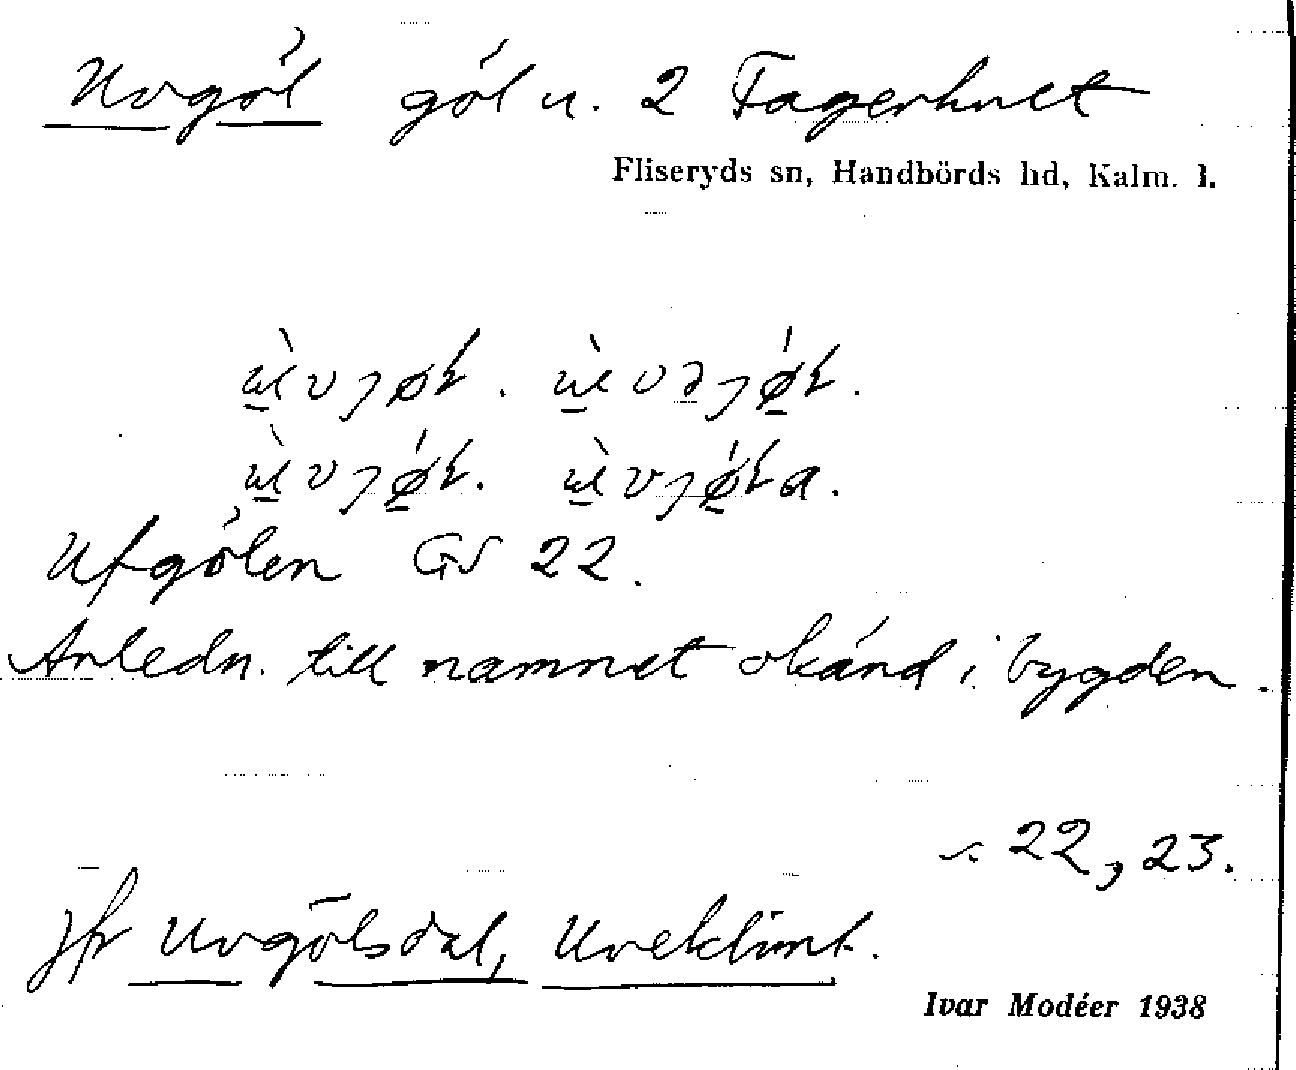 Uvgöl göl u. 2 Fagerhult
Fliseryds sn, Handbörds hd, Kalm. l.
Ufgölen GV 22.
Anledn. till namnet okänd i bygden.
s. 22, 23.
Jfr Uvgölsdal, Uveklint.
Ivar Modéer 1938